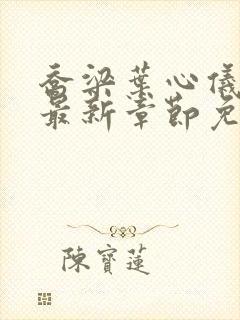 喬梁葉心儀
最新章節免
陳寶蓮